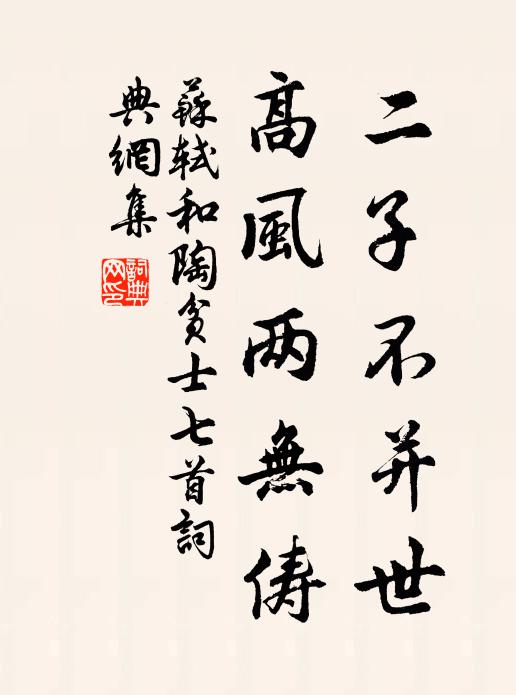 二子不并世
高風两無儔
蘇軾和陶貧士七首詞
典網集
詞典
网印